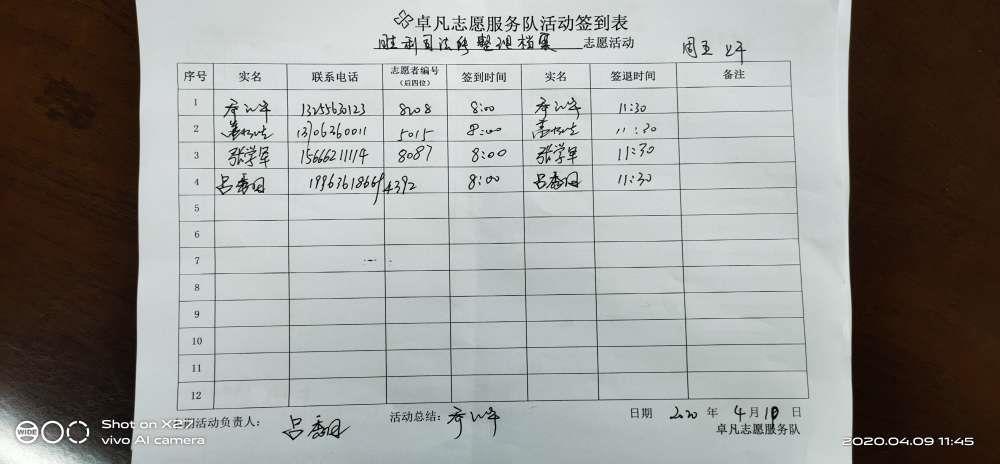 卓凡志愿服务队活动签到表
胜利司法所整理档案 志愿活动 周五 上午
序号 实名 联系电话 志愿者编号 签到时间 实名 签退时间 备注
(后四位)
1 13255630123 8208 8:00 11:30
2 13706360011 5015 8:00 11:30
3 张学军 15666211114 8087 8:00 张学军 11:30
4 吕秀明 19963618669 4392 8:00 吕秀明 11:30
5
6
7
8
9
10
11
12
活动负责人: 吕秀明 活动总结: 日期 2020 年 4 月 日
卓凡志愿服务队
WIDE
Shot on X27
vivo AI camera
2020.04.09 11:45